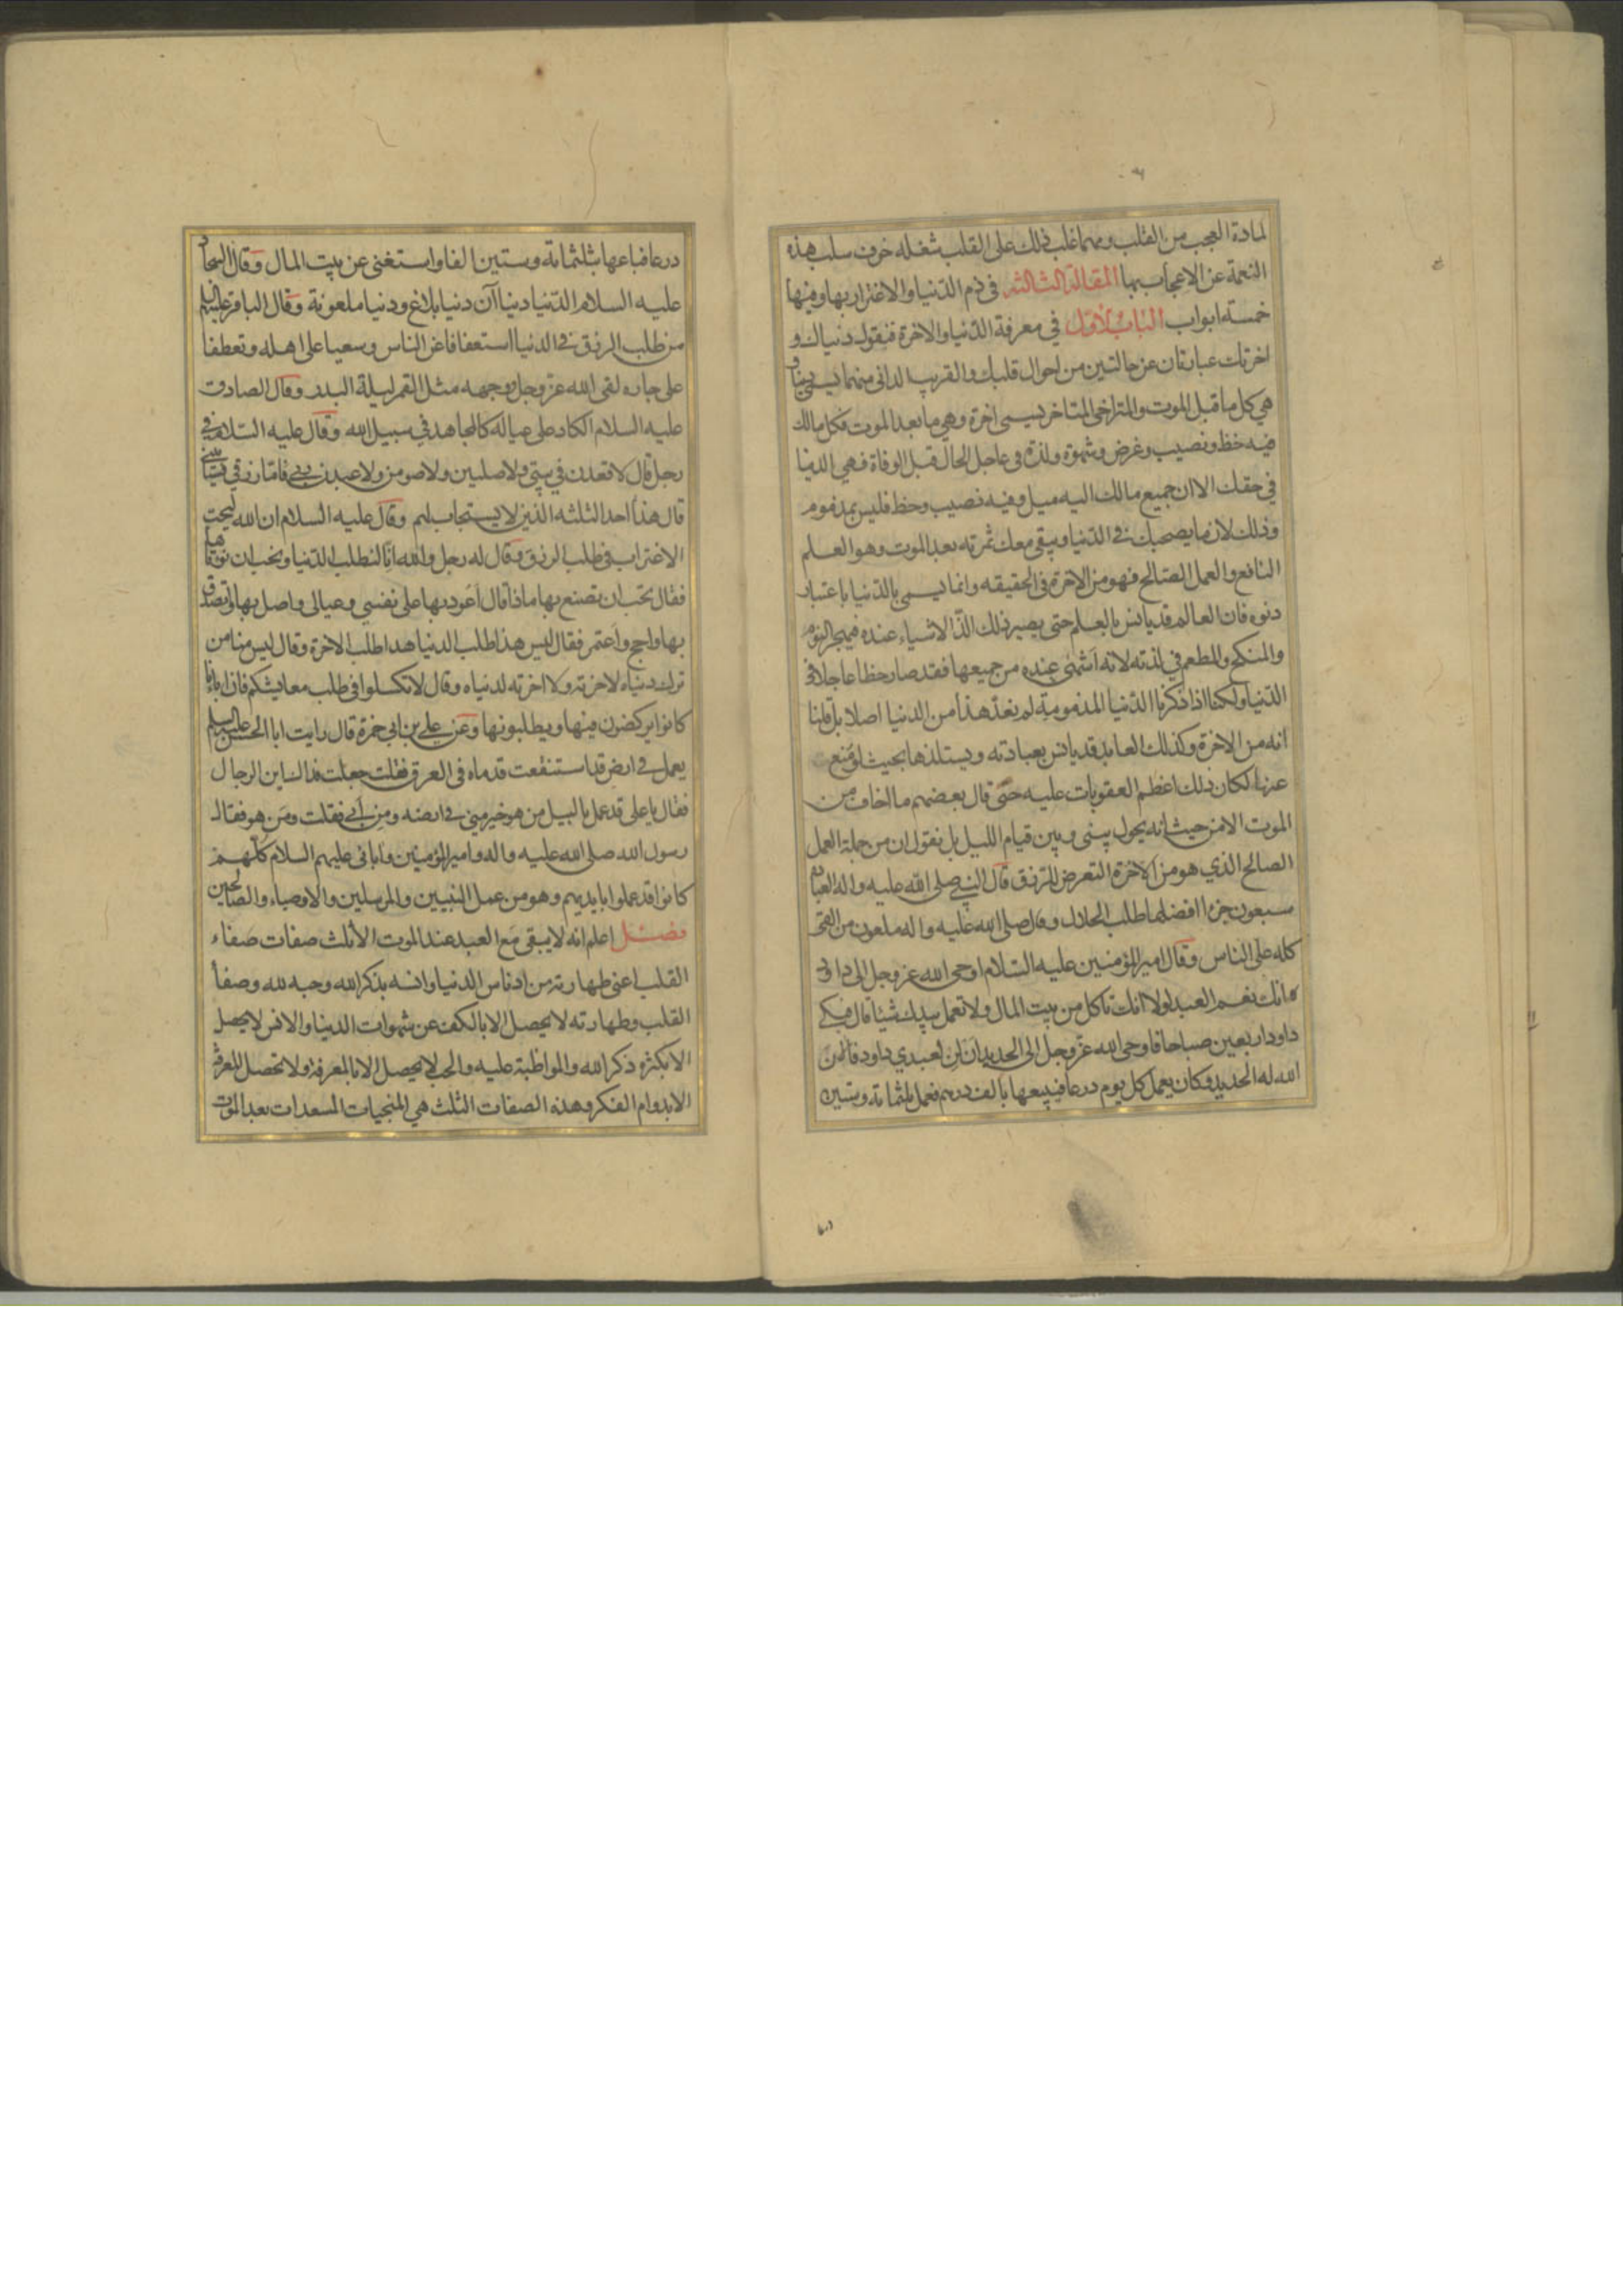 لمادة العجب من القلب ومهما غلب ذلك على القلب شغله خوف سلب هذه
النعمة عن الاعجاب بها المقالة الثالثه في ذم الدنيا والاغترار بها ومنها
خمسة ابواب الباب الاول في معرفة الدنيا والاخرة فنقول دنياك و
اخرتك عبارتان عن حالتين من احوال قلبك والقريب الداني منهما يسمى دنيا و
هي كل ما قبل الموت والمتراخي المتاخر يسمى اخرة وهي ما بعد الموت فكل مالك
فيه حظ ونصيب وغرض وشهوة ولذة في عاجل الحال قبل الوفاة فهي الدنيا
في حقك الا ان جميع مالك اليه ميل وفيه نصيب وحظ فليس بمذموم
وذلك لان ما يصحبك في الدنيا ويبقى معك ثمرته بعد الموت وهو العلم
النافع والعمل الصالح فهو من الاخرة في الحقيقه وانما يسمى بالدنيا باعتبار
دنوه فان العالم قد يانس بالعلم حتى يصير ذلك الذ الاشياء عنده فيهجر النوم
والمنكح والمطعم في لذته لانه اشهى عنده من جميعها فقد صار حظا عاجلا في
الدنيا ولكنا اذا ذكرنا الدنيا المذمومة لم نعد هذا من الدنيا اصلا بل قلنا
انه من الاخرة وكذلك العابد قد يانس بعبادته ويستلذها بحيث لو منع
عنها لكان ذلك اعظم العقوبات عليه حتى قال بعضهم ما اخاف من
الموت الا من حيث انه يحول بيني وبين قيام الليل بل نقول ان من جملة العمل
الصالح الذي هو من الاخرة التعرض للرزق قال النبي صلى الله عليه واله العبادة
سبعون جزءا افضلها طلب الحلال وقال صلى الله عليه واله ملعون من القى
كله على الناس وقال امير المؤمنين عليه السلام اوحى الله عز وجل الى داود
انك نعم العبد لولا انك تاكل من بيت المال ولا تعمل بيدك شيئا قال فبكى
داود اربعين صباحا فاوحى الله عز وجل الى الحديد ان لن لعبدي داود فالان
الله له الحديد وكان يعمل كل يوم درعا فيبيعها بالف درهم فعمل ثلثمائة وستين
درعا فباعها بثلثمائة وستين الفا واستغنى عن بيت المال وقال السجاد
عليه السلام الدنيا دنياآن دنيا بلاغ ودنيا ملعونة وقال الباقر عليه السلم
من طلب الرزق في الدنيا استعفافا عن الناس وسعيا على اهله وتعطفا
على جاره لقى الله عز وجل ووجهه مثل القمر ليلة البدر وقال الصادق
عليه السلام الكاد على عياله كالمجاهد في سبيل الله وقال عليه السلام في
رجل قال لاقعدن في بيتي ولاصلين ولاصومن ولاعبدن ربي فاما رزقي فسياتيني
قال هذا احد الثلثه الذين لا يستجاب لهم وقال عليه السلام ان الله ليحب
الاغتراب في طلب الرزق وقال له رجل والله انا لنطلب الدنيا ونحب ان نؤتاها
فقال تحب ان تصنع بها ماذا قال اعود بها على نفسي وعيالي واصل بها واتصدق
بها واحج واعتمر فقال ليس هذا طلب الدنيا هذا طلب الاخرة وقال ليس منا من
ترك دنياه لاخرته ولا اخرته لدنياه وقال لا تكسلوا في طلب معايشكم فان اباءنا
كانوا يركضون فيها ويطلبونها وعن علي بن ابي حمزة قال رايت ابا الحسن عليه السلم
يعمل في ارض قد استنقعت قدماه في العرق فقلت جعلت فداك اين الرجال
فقال يا على قد عمل بالبيل من هو خير مني في ارضه ومن ابي فقلت ومن هو فقال
رسول الله صلى الله عليه واله وامير المؤمنين وابائي عليهم السلام كلهم
كانوا قد عملوا بايديهم وهو من عمل النبيين والمرسلين والاوصياء والصالحين
فصل اعلم انه لا يبقى مع العبد عند الموت الا ثلث صفات صفاء
القلب اعني طهارته من ادناس الدنيا وانسه بذكر الله وحبه لله وصفاء
القلب وطهارته لا يحصل الا بالكف عن شهوات الدنيا والانس لا يحصل
الا بكثرة ذكر الله والمواظبة عليه والحب لا يحصل الا بالمعرفة ولا تحصل المعرفة
الا بدوام الفكر وهذه الصفات الثلث هي المنجيات المسعدات بعد الموت